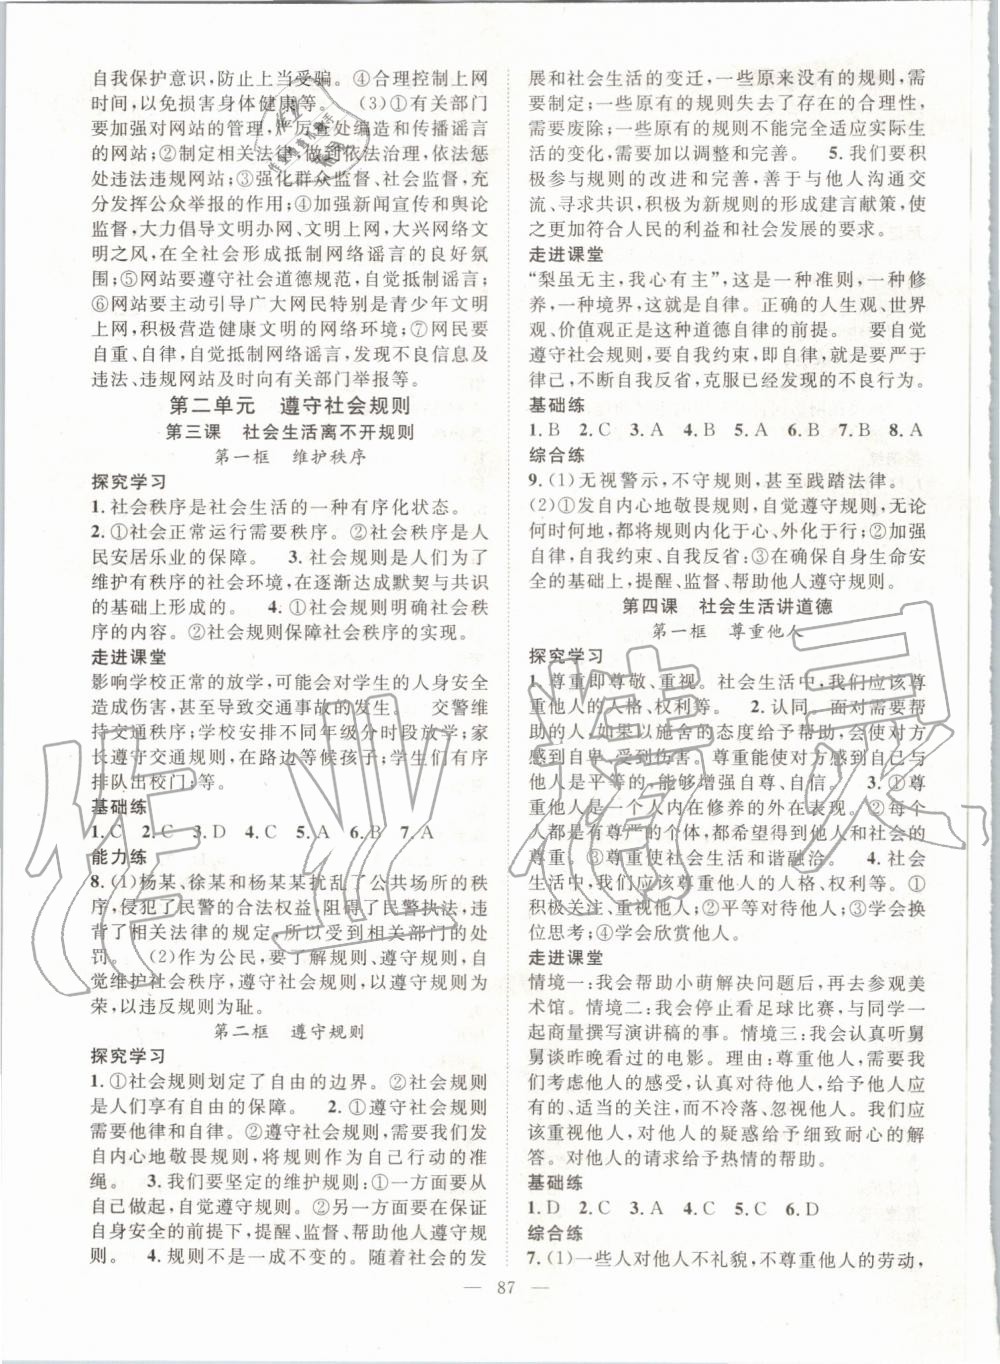 自我保护意识,防止上当受骗。④合理控制上网
时间,以免损害身体健康等。　(3)①有关部门
要加强对网站的管理,严厉查处编造和传播谣言
的网站;②制定相关法律,做到依法治理,依法惩
处违法违规网站;③强化群众监督、社会监督,充
分发挥公众举报的作用;④加强新闻宣传和舆论
监督,大力倡导文明办网、文明上网,大兴网络文
明之风,在全社会形成抵制网络谣言的良好氛
围;⑤网站要遵守社会道德规范,自觉抵制谣言;
⑥网站要主动引导广大网民特别是青少年文明
上网,积极营造健康文明的网络环境;⑦网民要
自重、自律,自觉抵制网络谣言,发现不良信息及
违法、违规网站及时向有关部门举报等。
第二单元　遵守社会规则
第三课　社会生活离不开规则
第一框　维护秩序
探究学习
1.社会秩序是社会生活的一种有序化状态。
2.①社会正常运行需要秩序。②社会秩序是人
民安居乐业的保障。　3.社会规则是人们为了
维护有秩序的社会环境,在逐渐达成默契与共识
的基础上形成的。　4.①社会规则明确社会秩
序的内容。②社会规则保障社会秩序的实现。
走进课堂
影响学校正常的放学,可能会对学生的人身安全
造成伤害,甚至导致交通事故的发生。　交警维
持交通秩序;学校安排不同年级分时段放学;家
长遵守交通规则,在路边等候孩子;学生们有序
排队出校门;等。
基础练
1.C　2.C　3.D　4.C　5.A　6.B　7.A
能力练
8.(1)杨某、徐某和杨某某扰乱了公共场所的秩
序,侵犯了民警的合法权益,阻碍了民警执法,违
背了相关法律的规定,所以受到相关部门的处
罚。　(2)作为公民,要了解规则、遵守规则,自
觉维护社会秩序,遵守社会规则,以遵守规则为
荣,以违反规则为耻。
第二框　遵守规则
探究学习
1.①社会规则划定了自由的边界。②社会规则
是人们享有自由的保障。　2.①遵守社会规则
需要他律和自律。②遵守社会规则,需要我们发
自内心地敬畏规则,将规则作为自己行动的准
绳。　3.我们要坚定的维护规则:①一方面要从
自己做起,自觉遵守规则。②一方面要在保证
自身安全的前提下,提醒、监督、帮助他人遵守规
则。　4.规则不是一成不变的。随着社会的发
展和社会生活的变迁,一些原来没有的规则,需
要制定;一些原有的规则失去了存在的合理性,
需要废除;一些原有的规则不能完全适应实际生
活的变化,需要加以调整和完善。　5.我们要积
极参与规则的改进和完善,善于与他人沟通交
流、寻求共识,积极为新规则的形成建言献策,使
之更加符合人民的利益和社会发展的要求。
走进课堂
“梨虽无主,我心有主”,这是一种准则,一种修
养,一种境界,这就是自律。正确的人生观、世界
观、价值观正是这种道德自律的前提。　要自觉
遵守社会规则,要自我约束,即自律,就是要严于
律己,不断自我反省,克服已经发现的不良行为。
基础练
1.B　2.C　3.A　4.B　5.D　6.B　7.B　8.A
综合练
9.(1)无视警示,不守规则,甚至践踏法律。
(2)①发自内心地敬畏规则,自觉遵守规则,无论
何时何地,都将规则内化于心、外化于行;②加强
自律,自我约束、自我反省;③在确保自身生命安
全的基础上,提醒、监督、帮助他人遵守规则。
第四课　社会生活讲道德
第一框　尊重他人
探究学习
1.尊重即尊敬、重视。社会生活中,我们应该尊
重他人的人格、权利等。　2.认同。面对需要帮
助的人,如果以施舍的态度给予帮助,会使对方
感到自卑、受到伤害。尊重能使对方感到自己与
他人是平等的,能够增强自尊、自信。　3.①尊
重他人是一个人内在修养的外在表现。②每个
人都是有尊严的个体,都希望得到他人和社会的
尊重。③尊重使社会生活和谐融洽。　4.社会
生活中,我们应该尊重他人的人格、权利等。①
积极关注、重视他人;②平等对待他人;③学会换
位思考;④学会欣赏他人。
走进课堂
情境一:我会帮助小萌解决问题后,再去参观美
术馆。情境二:我会停止看足球比赛,与同学一
起商量撰写演讲稿的事。情境三:我会认真听舅
舅谈昨晚看过的电影。理由:尊重他人,我们就
要考虑他人的感受,认真对待他人,给予他人应
有的、适当的关注,而不冷落、忽视他人。我们应
该重视他人,对他人的疑惑给予细致耐心的解
答。对他人的请求给予热情的帮助。
基础练
1.D　2.C　3.A　4.C　5.C　6.D
综合练
7.(1)一些人对他人不礼貌,不尊重他人的劳动,
— 87 —
作业精灵